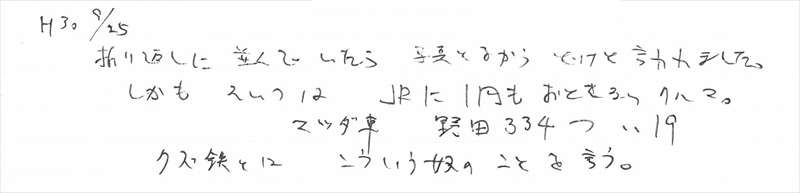 H30 9/25
折り返しに並んでいたら 写真とるからどけと言われました。
しかも そいつは JRに1円もおとさない クルマ。
マツダ車 野田334つ ・・19
クズ鉄とは こういう奴の ことを言う。